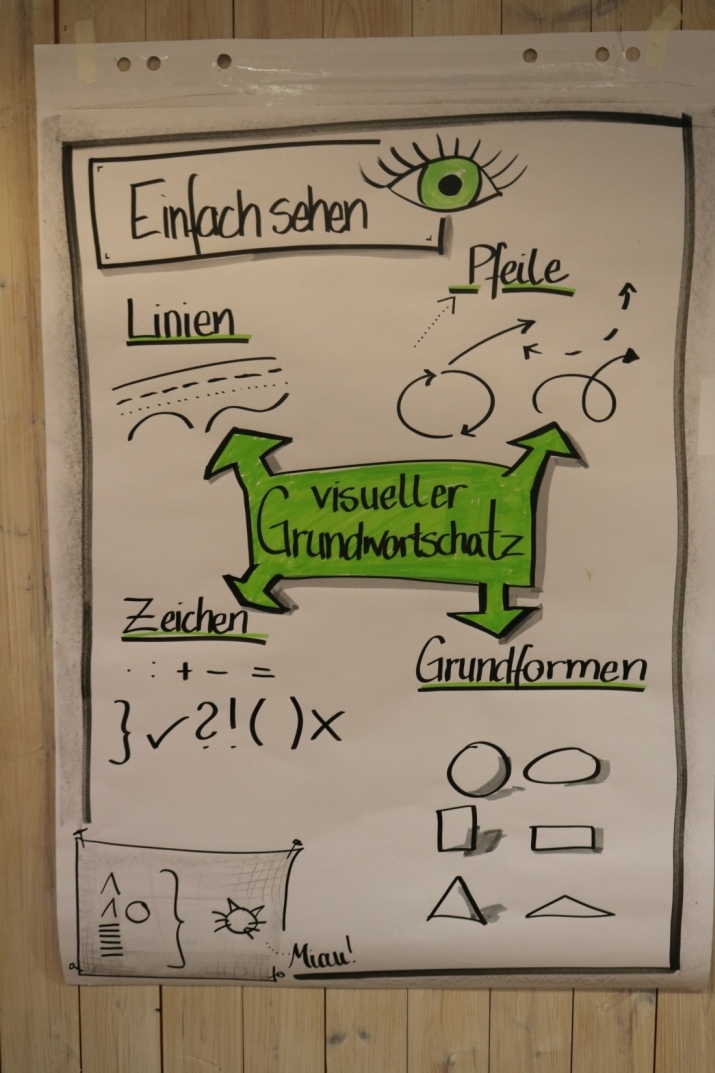 Einfach sehen
Pfeile
Linien
visueller
Grundwortschatz
Zeichen
· : + − =
} ✓ ? ! ( ) x
Grundformen
Miau!